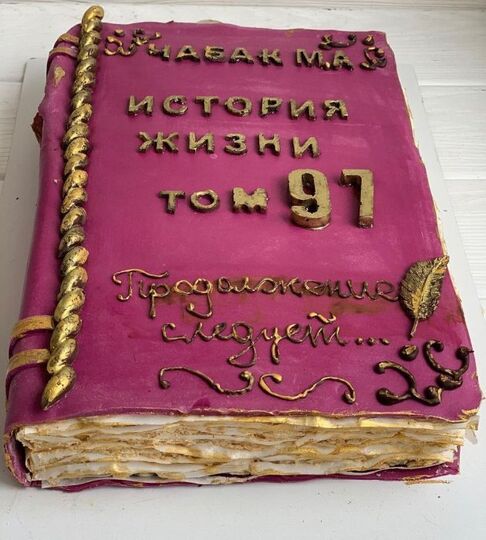 ЧАБАК М.А.
ИСТОРИЯ
ЖИЗНИ
ТОМ 97
Продолжение
следует...